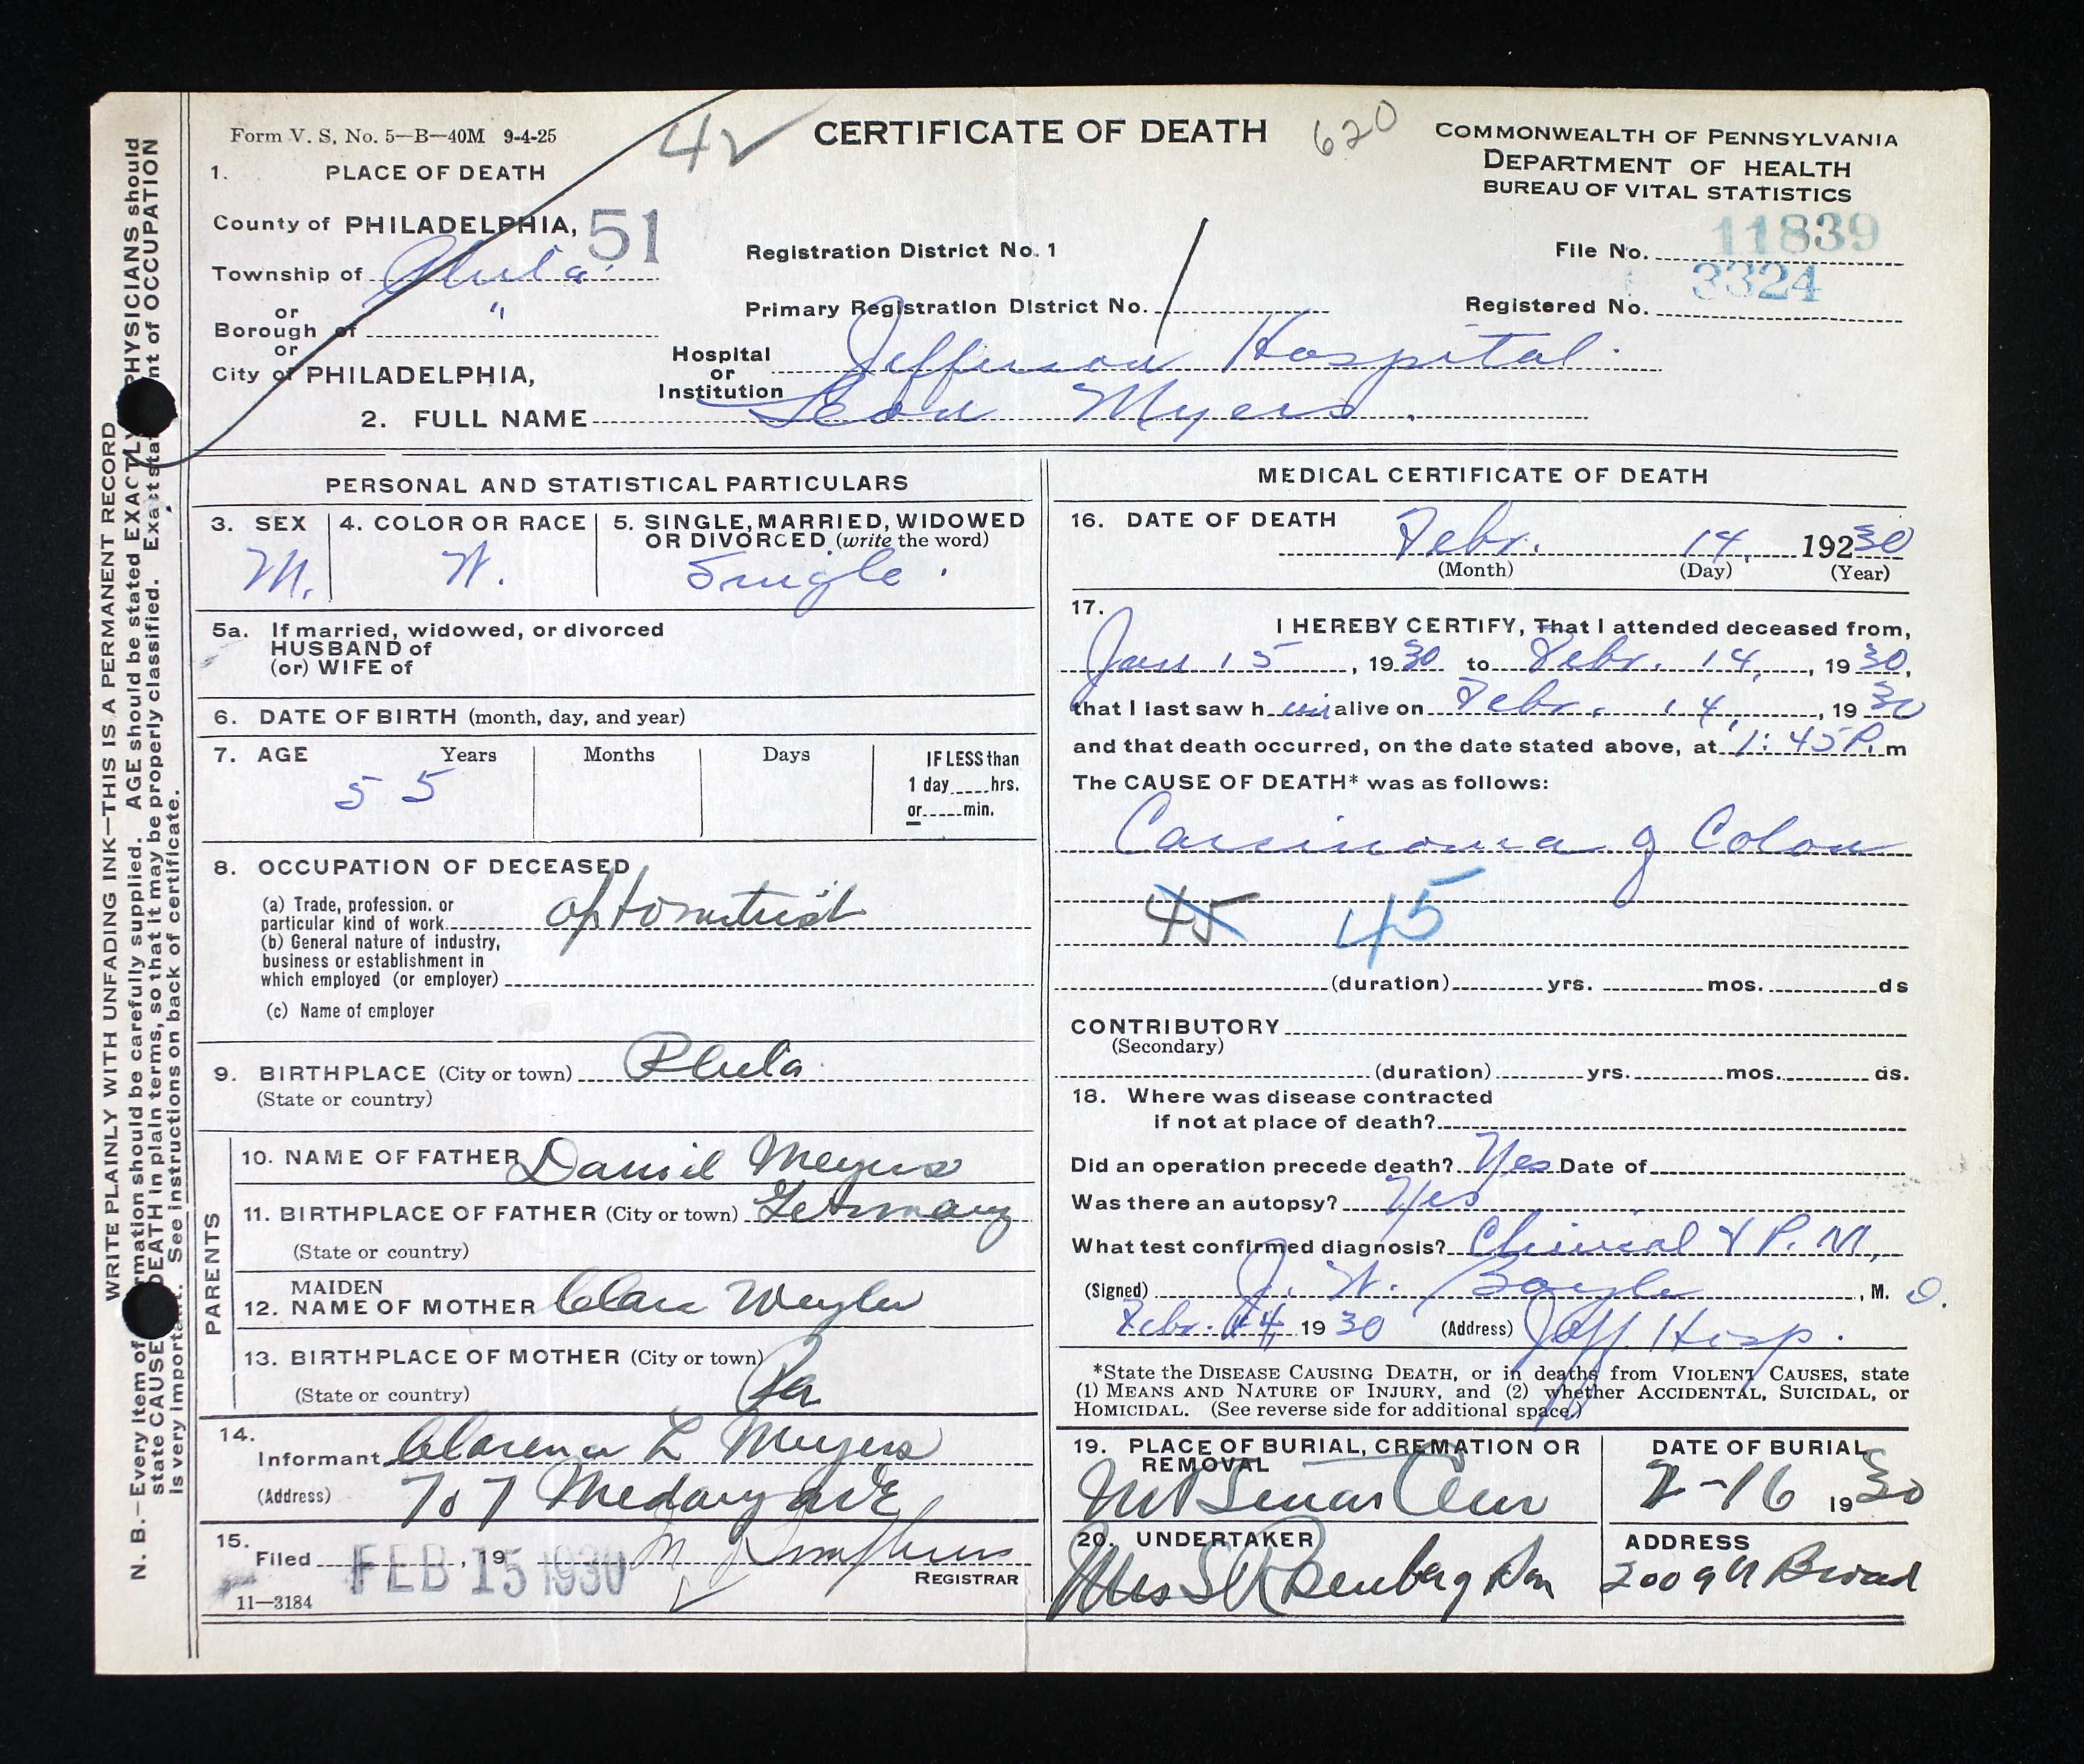 Form V. S. No. 5—B—40M 9-4-25
42
CERTIFICATE OF DEATH
620
COMMONWEALTH OF PENNSYLVANIA
DEPARTMENT OF HEALTH
BUREAU OF VITAL STATISTICS
1. PLACE OF DEATH
County of PHILADELPHIA, 51
Registration District No. 1
File No. 11839
Township of Phila.
or
Borough of "
Primary Registration District No. 1
Registered No. 3324
or
City of PHILADELPHIA,
Hospital or Institution Jefferson Hospital.
2. FULL NAME Leon Myers.
PERSONAL AND STATISTICAL PARTICULARS
3. SEX
M.
4. COLOR OR RACE
W.
5. SINGLE, MARRIED, WIDOWED
OR DIVORCED (write the word)
Single.
5a. If married, widowed, or divorced
HUSBAND of
(or) WIFE of
6. DATE OF BIRTH (month, day, and year)
7. AGE Years Months Days IF LESS than
55
1 day hrs.
or min.
8. OCCUPATION OF DECEASED
(a) Trade, profession, or
particular kind of work optometrist
(b) General nature of industry,
business or establishment in
which employed (or employer)
(c) Name of employer
9. BIRTHPLACE (City or town) Phila
(State or country)
PARENTS
10. NAME OF FATHER Daniel Meyers
11. BIRTHPLACE OF FATHER (City or town) Germany
(State or country)
MAIDEN
12. NAME OF MOTHER Clara Weyler
13. BIRTHPLACE OF MOTHER (City or town)
(State or country) Pa
14.
Informant Clarence L Meyers
(Address) 707 Medary ave
15.
Filed FEB 15 1930, 19
REGISTRAR
11—3184
MEDICAL CERTIFICATE OF DEATH
16. DATE OF DEATH
Febr. 14, 19230
(Month) (Day) (Year)
17.
I HEREBY CERTIFY, That I attended deceased from,
Jan 15, 1930 to Febr. 14, 1930,
that I last saw him alive on Febr. 14, 1930
and that death occurred, on the date stated above, at 1:45 P.m
The CAUSE OF DEATH* was as follows:
Carcinoma of Colon
45 45
(duration) yrs. mos. ds
CONTRIBUTORY
(Secondary)
(duration) yrs. mos. ds.
18. Where was disease contracted
if not at place of death?
Did an operation precede death? Yes Date of
Was there an autopsy? Yes
What test confirmed diagnosis? Clinical & P. M.
(Signed) J. W. Boyle, M. D.
Febr. 14, 1930 (Address) Jeff. Hosp.
*State the DISEASE CAUSING DEATH, or in deaths from VIOLENT CAUSES, state
(1) MEANS AND NATURE OF INJURY, and (2) whether ACCIDENTAL, SUICIDAL, or
HOMICIDAL. (See reverse side for additional space.)
19. PLACE OF BURIAL, CREMATION OR
REMOVAL
Mt Sinai Cem
DATE OF BURIAL
2-16 1930
20. UNDERTAKER
Mrs S Rosenberg Son
ADDRESS
2009 N Broad
WRITE PLAINLY WITH UNFADING INK—THIS IS A PERMANENT RECORD
N. B.—Every item of information should be carefully supplied. AGE should be stated EXACTLY. PHYSICIANS should
state CAUSE DEATH in plain terms, so that it may be properly classified. Exact statement of OCCUPATION
is very important. See instructions on back of certificate.